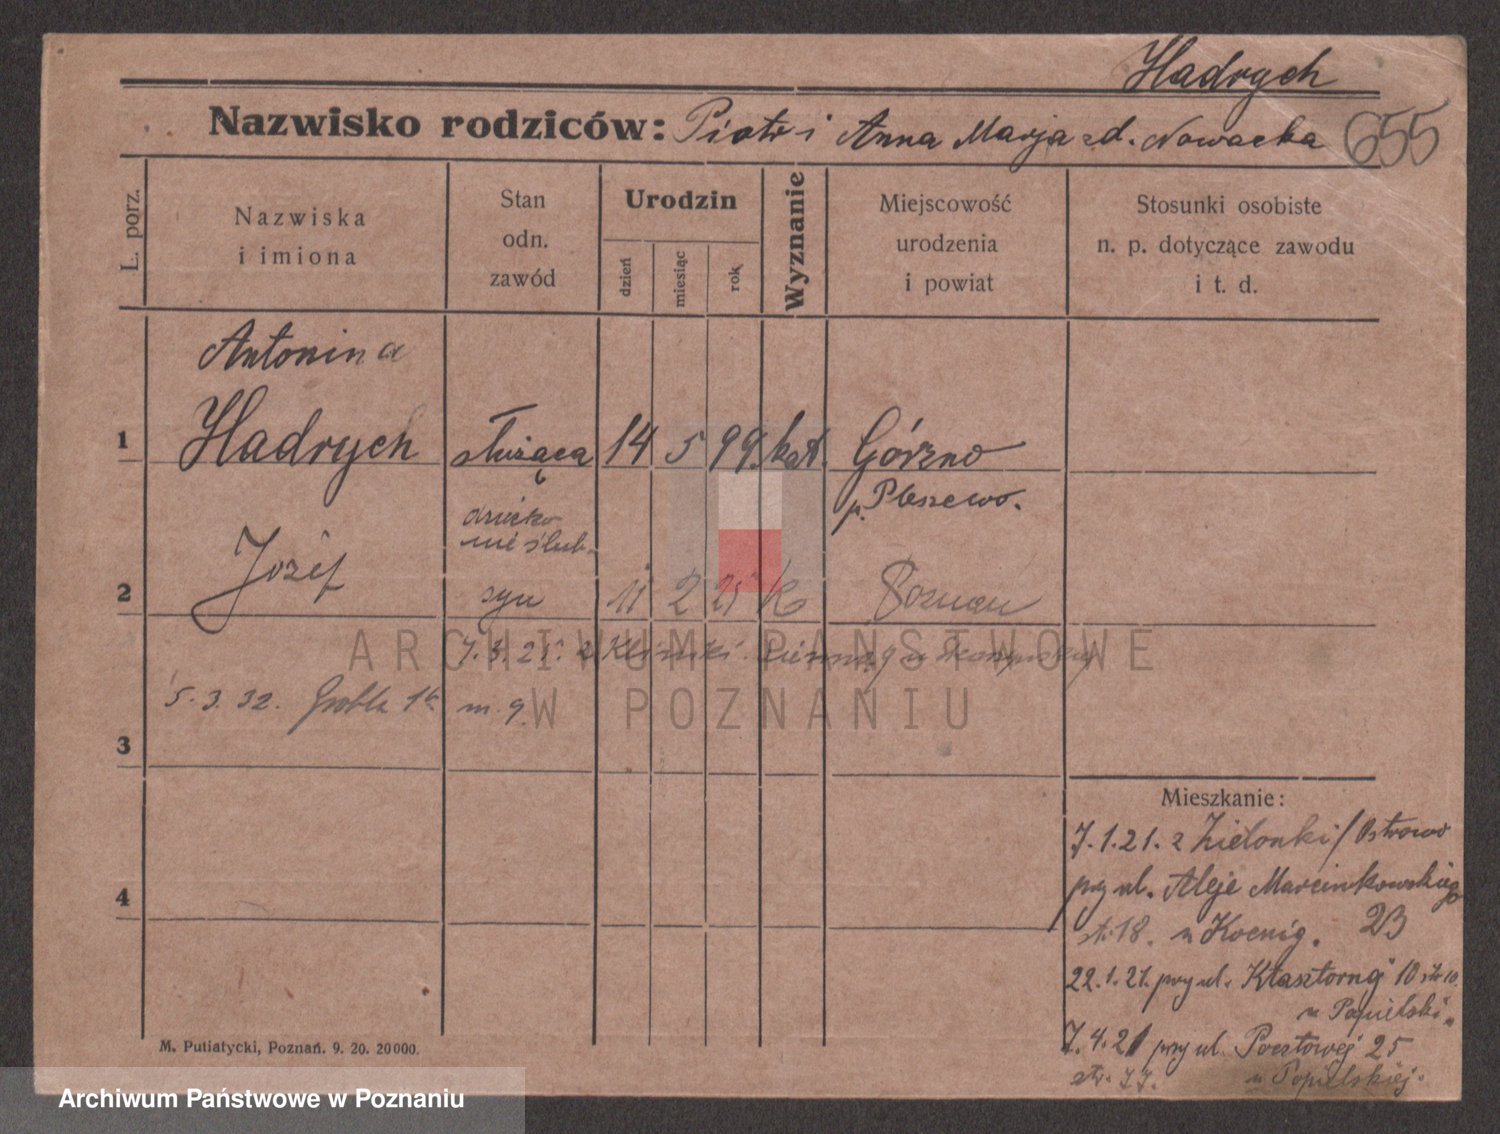 Hadrych
Nazwisko rodziców: Piotr i Anna Marja zd. Nowacka 655
L. porz.
Nazwiska
i imiona
Stan
odn.
zawód
Urodzin
dzień
miesiąc
rok
Wyznanie
Miejscowość
urodzenia
i powiat
Stosunki osobiste
n. p. dotyczące zawodu
i t. d.
Antonina
1 Hadrych służąca 14 5 99. kat. Górzno
p. Pleszewo.
dziecko
nieślub.
2 Józef syn 11 2 21 k Poznań
ARCHIWUM PAŃSTWOWE
W POZNANIU
7.3.21. z Kliniki
5.3.32. Grobla 1a m. 9.
3
Mieszkanie:
7.1.21. z Zielonki / Ostrowo
przy ul. Aleje Marcinkowskiego
str 18. u Koenig. 2B
22.1.21. przy ul. Klasztorną 10 str 10
u Popielski.
7.4.21 przy ul. Pocztowej 25
str. 77. u Popielskiej.
4
M. Putiatycki, Poznań. 9. 20. 20000.
Archiwum Państwowe w Poznaniu